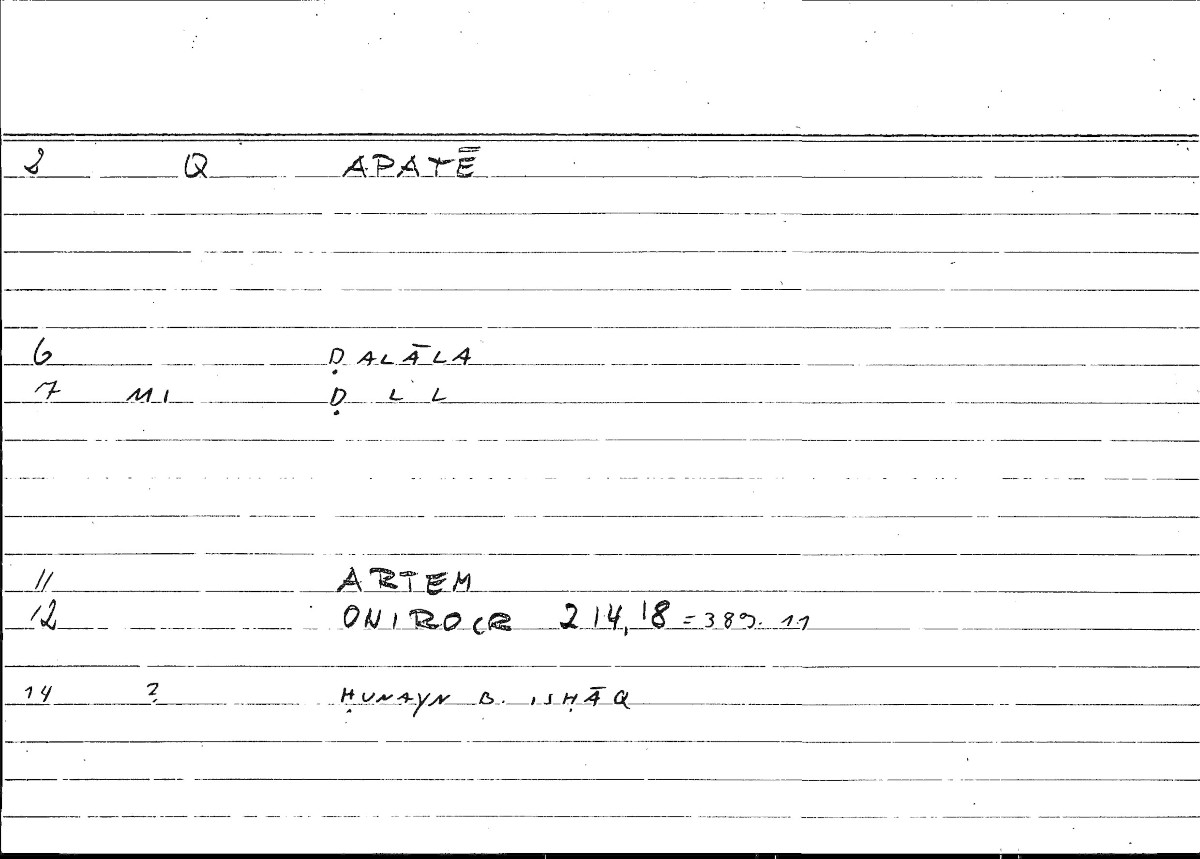 2 Q APATĒ
6 ḌALĀLA
7 M1 Ḍ L L
11 ARTEM
12 ONIROCR 214,18 = 389. 11
14 ? ḤUNAYN B. ISḤĀQ